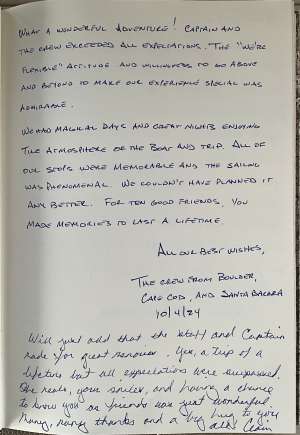 WHAT A WONDERFUL ADVENTURE! CAPTAIN AND
THE CREW EXCEEDED ALL EXPECTATIONS. THE "WE'RE
FLEXIBLE" ATTITUDE AND WILLINGNESS TO GO ABOVE
AND BEYOND TO MAKE OUR EXPERIENCE SPECIAL WAS
ADMIRABLE.
WE HAD MAGICAL DAYS AND GREAT NIGHTS ENJOYING
THE ATMOSPHERE OF THE BOAT AND TRIP. ALL OF
OUR STOPS WERE MEMORABLE AND THE SAILING
WAS PHENOMENAL. WE COULDN'T HAVE PLANNED IT
ANY BETTER. FOR TEN GOOD FRIENDS, YOU
MADE MEMORIES TO LAST A LIFETIME
ALL OUR BEST WISHES,
THE CREW FROM BOULDER,
CAPE COD, AND SANTA BARBARA
10/4/24
Will just add that the staff and Captain
made for great memories. Yes, a trip of a
lifetime but all expectations were surpassed.
The meals, your smiles, and having a chance
to know you as friends was just wonderful
Many, many thanks and a big hug to you
all!